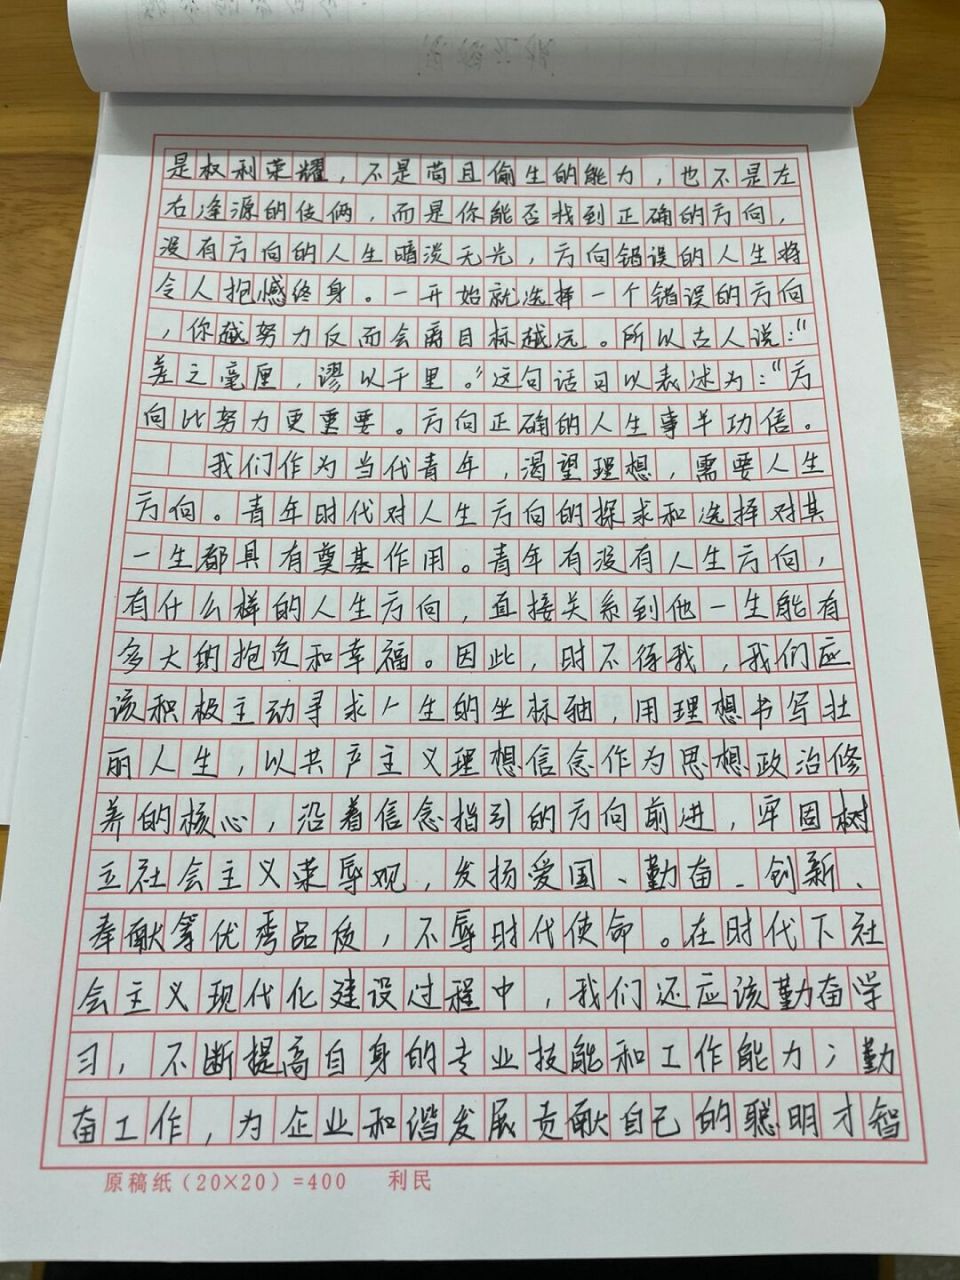 是权利荣耀，不是苟且偷生的能力，也不是左
右逢源的伎俩，而是你能否找到正确的方向，
没有方向的人生暗淡无光，方向错误的人生将
令人抱憾终身。一开始就选择一个错误的方向
，你越努力反而会离目标越远。所以古人说：“
差之毫厘，谬以千里。”这句话可以表述为：“方
向比努力更重要。方向正确的人生事半功倍。
我们作为当代青年，渴望理想，需要人生
方向。青年时代对人生方向的探求和选择对其
一生都具有奠基作用。青年有没有人生方向，
有什么样的人生方向，直接关系到他一生能有
多大的抱负和幸福。因此，时不待我，我们应
该积极主动寻求人生的坐标轴，用理想书写壮
丽人生，以共产主义理想信念作为思想政治修
养的核心，沿着信念指引的方向前进，牢固树
立社会主义荣辱观，发扬爱国、勤奋、创新、
奉献等优秀品质，不辱时代使命。在时代下社
会主义现代化建设过程中，我们还应该勤奋学
习，不断提高自身的专业技能和工作能力；勤
奋工作，为企业和谐发展贡献自己的聪明才智
原稿纸（20×20）=400 利民